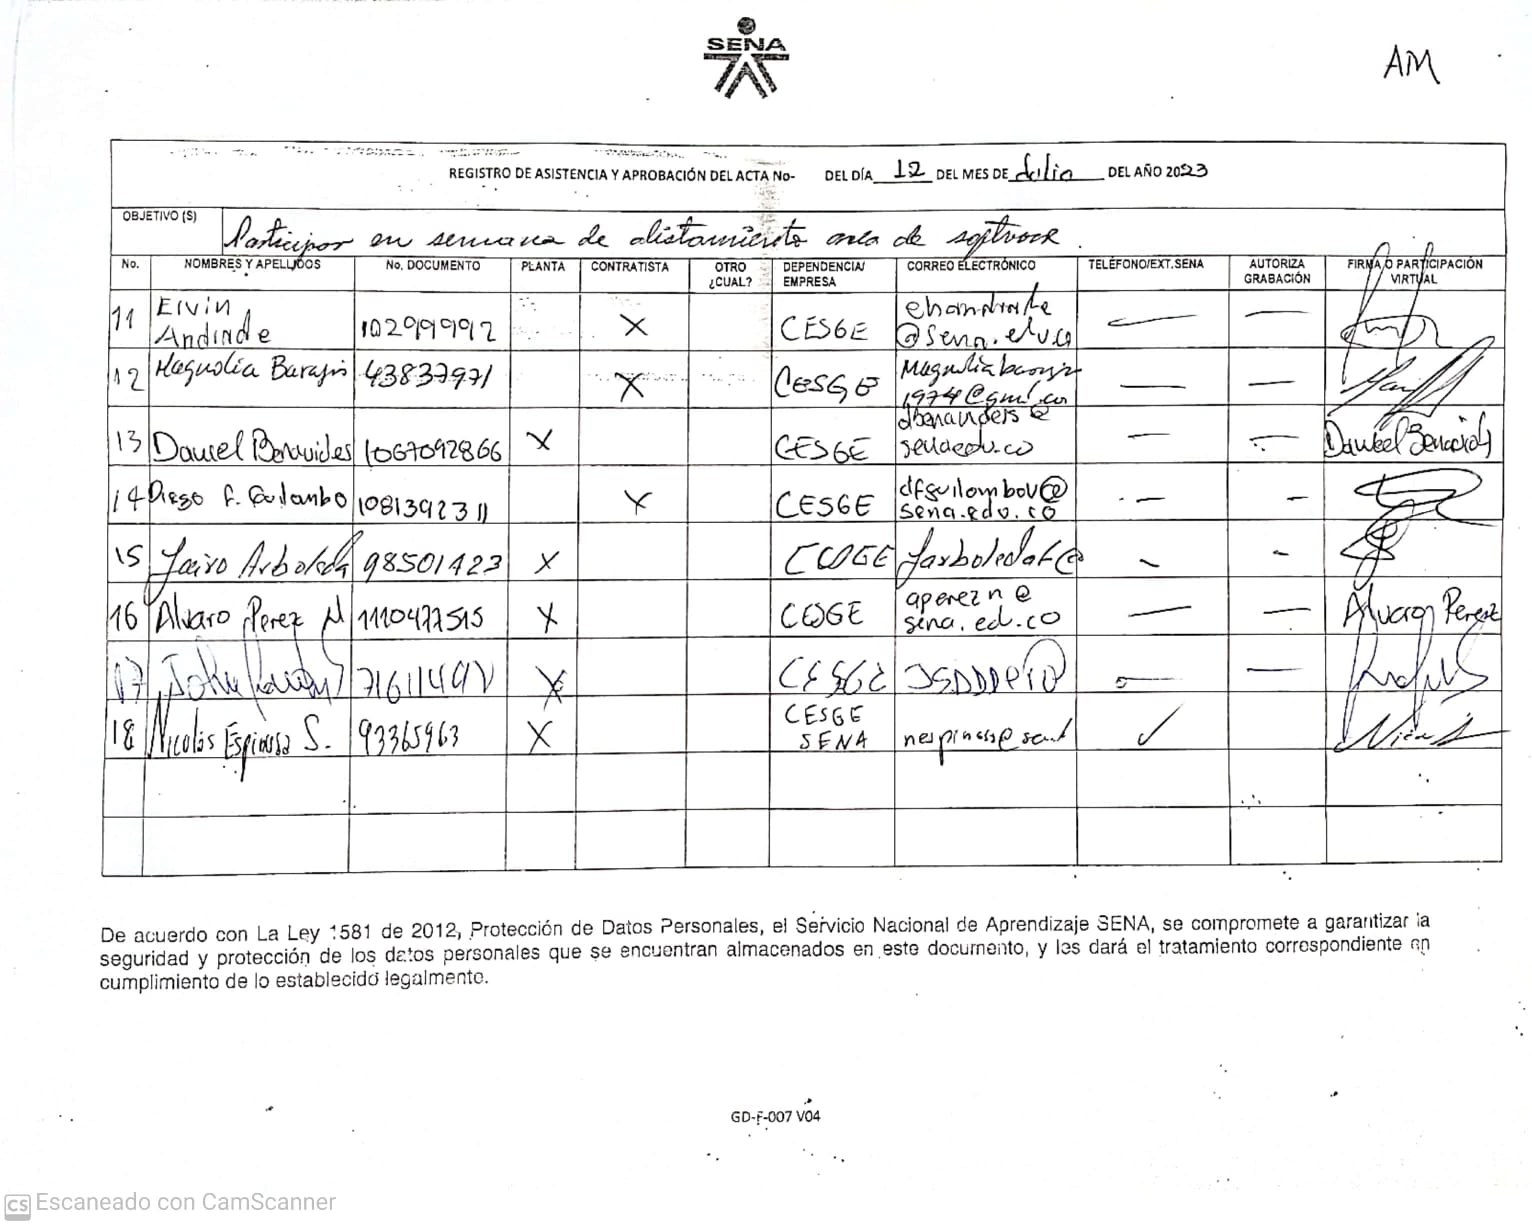 SENA
AM
REGISTRO DE ASISTENCIA Y APROBACIÓN DEL ACTA No- DEL DÍA 12 DEL MES DE Julio DEL AÑO 2023
OBJETIVO (S) Participar en semana de alistamiento area de software.
No. NOMBRES Y APELLIDOS No. DOCUMENTO PLANTA CONTRATISTA OTRO ¿CUAL? DEPENDENCIA/ EMPRESA CORREO ELECTRÓNICO TELÉFONO/EXT.SENA AUTORIZA GRABACIÓN FIRMA O PARTICIPACIÓN VIRTUAL
11 Elvin Andrade 102999992 X CESGE @sena.edu.co
12 Magnolia 43837971 X CESGE 1974@gml.co
13 Daniel Benavides 1067092866 X CESGE senaedu.co Daniel
14 Diego F. 1081392311 X CESGE dfguilombov@ sena.edu.co
15 Jairo Arboleda 98501423 X jarboledaf@
16 Alvaro Perez N 1110477515 X aperezn@ sena.ed.co Alvaro Perez
17 John X CESGE
18 Nicolás Espinosa S. 93365963 X CESGE SENA ✓
De acuerdo con La Ley 1581 de 2012, Protección de Datos Personales, el Servicio Nacional de Aprendizaje SENA, se compromete a garantizar la
seguridad y protección de los datos personales que se encuentran almacenados en este documento, y les dará el tratamiento correspondiente en
cumplimiento de lo establecido legalmente.
GD-F-007 V04
CS Escaneado con CamScanner